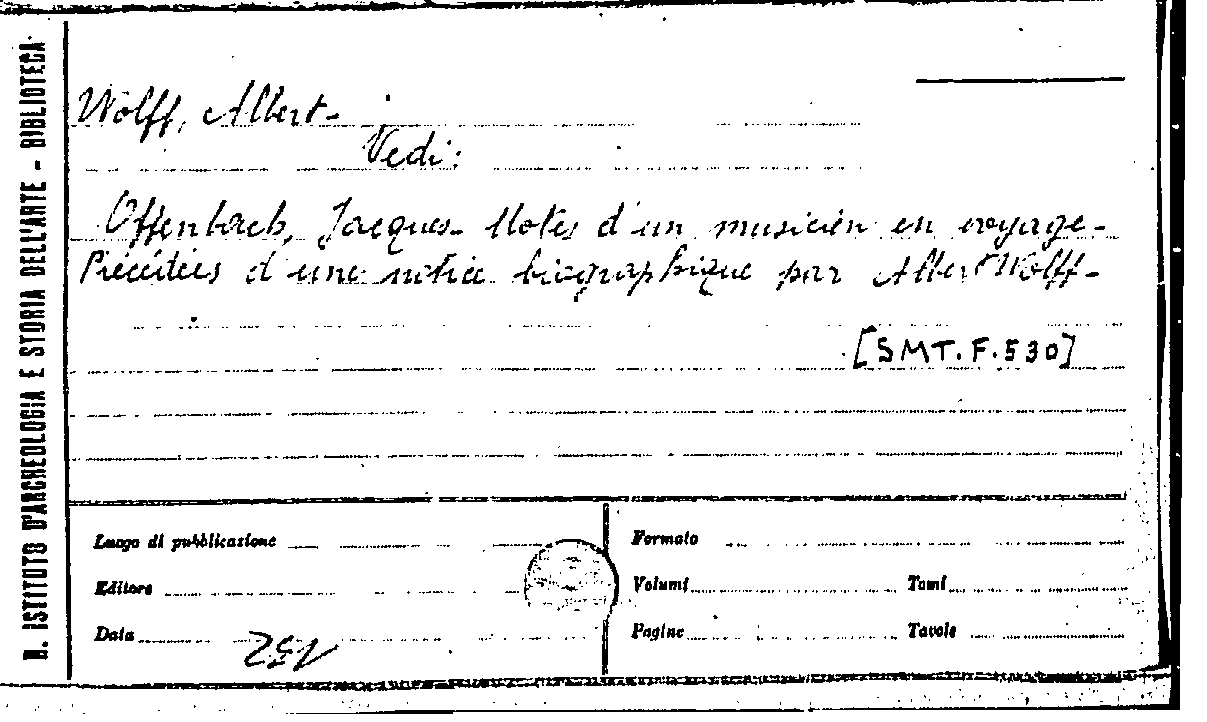 R. ISTITUTO D'ARCHEOLOGIA E STORIA DELL'ARTE - BIBLIOTECA
Wolff, Albert-
Vedi:
Offenbach, Jacques- Notes d'un musicien en voyage-
Précédées d'une notice biographique par Albert Wolff-
[SMT.F.530]
Luogo di pubblicazione
Formato
Editore
Volumi
Tomi
Data
Pagine
Tavole